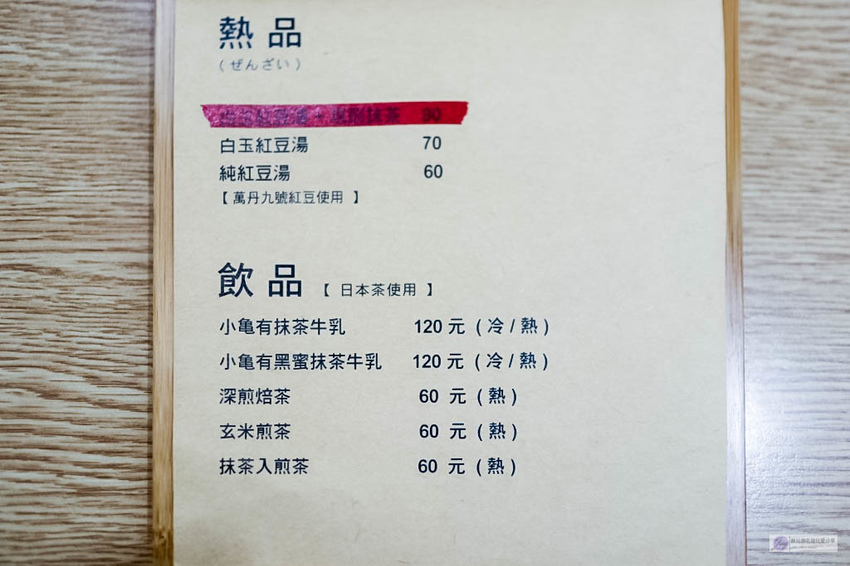 熱品
(ぜんざい)
抹茶 90
白玉紅豆湯 70
純紅豆湯 60
【 萬丹九號紅豆使用 】
飲品 【 日本茶使用 】
小亀有抹茶牛乳 120 元 ( 冷 / 熱 )
小亀有黑蜜抹茶牛乳 120 元 ( 冷 / 熱 )
深煎焙茶 60 元 ( 熱 )
玄米煎茶 60 元 ( 熱 )
抹茶入煎茶 60 元 ( 熱 )